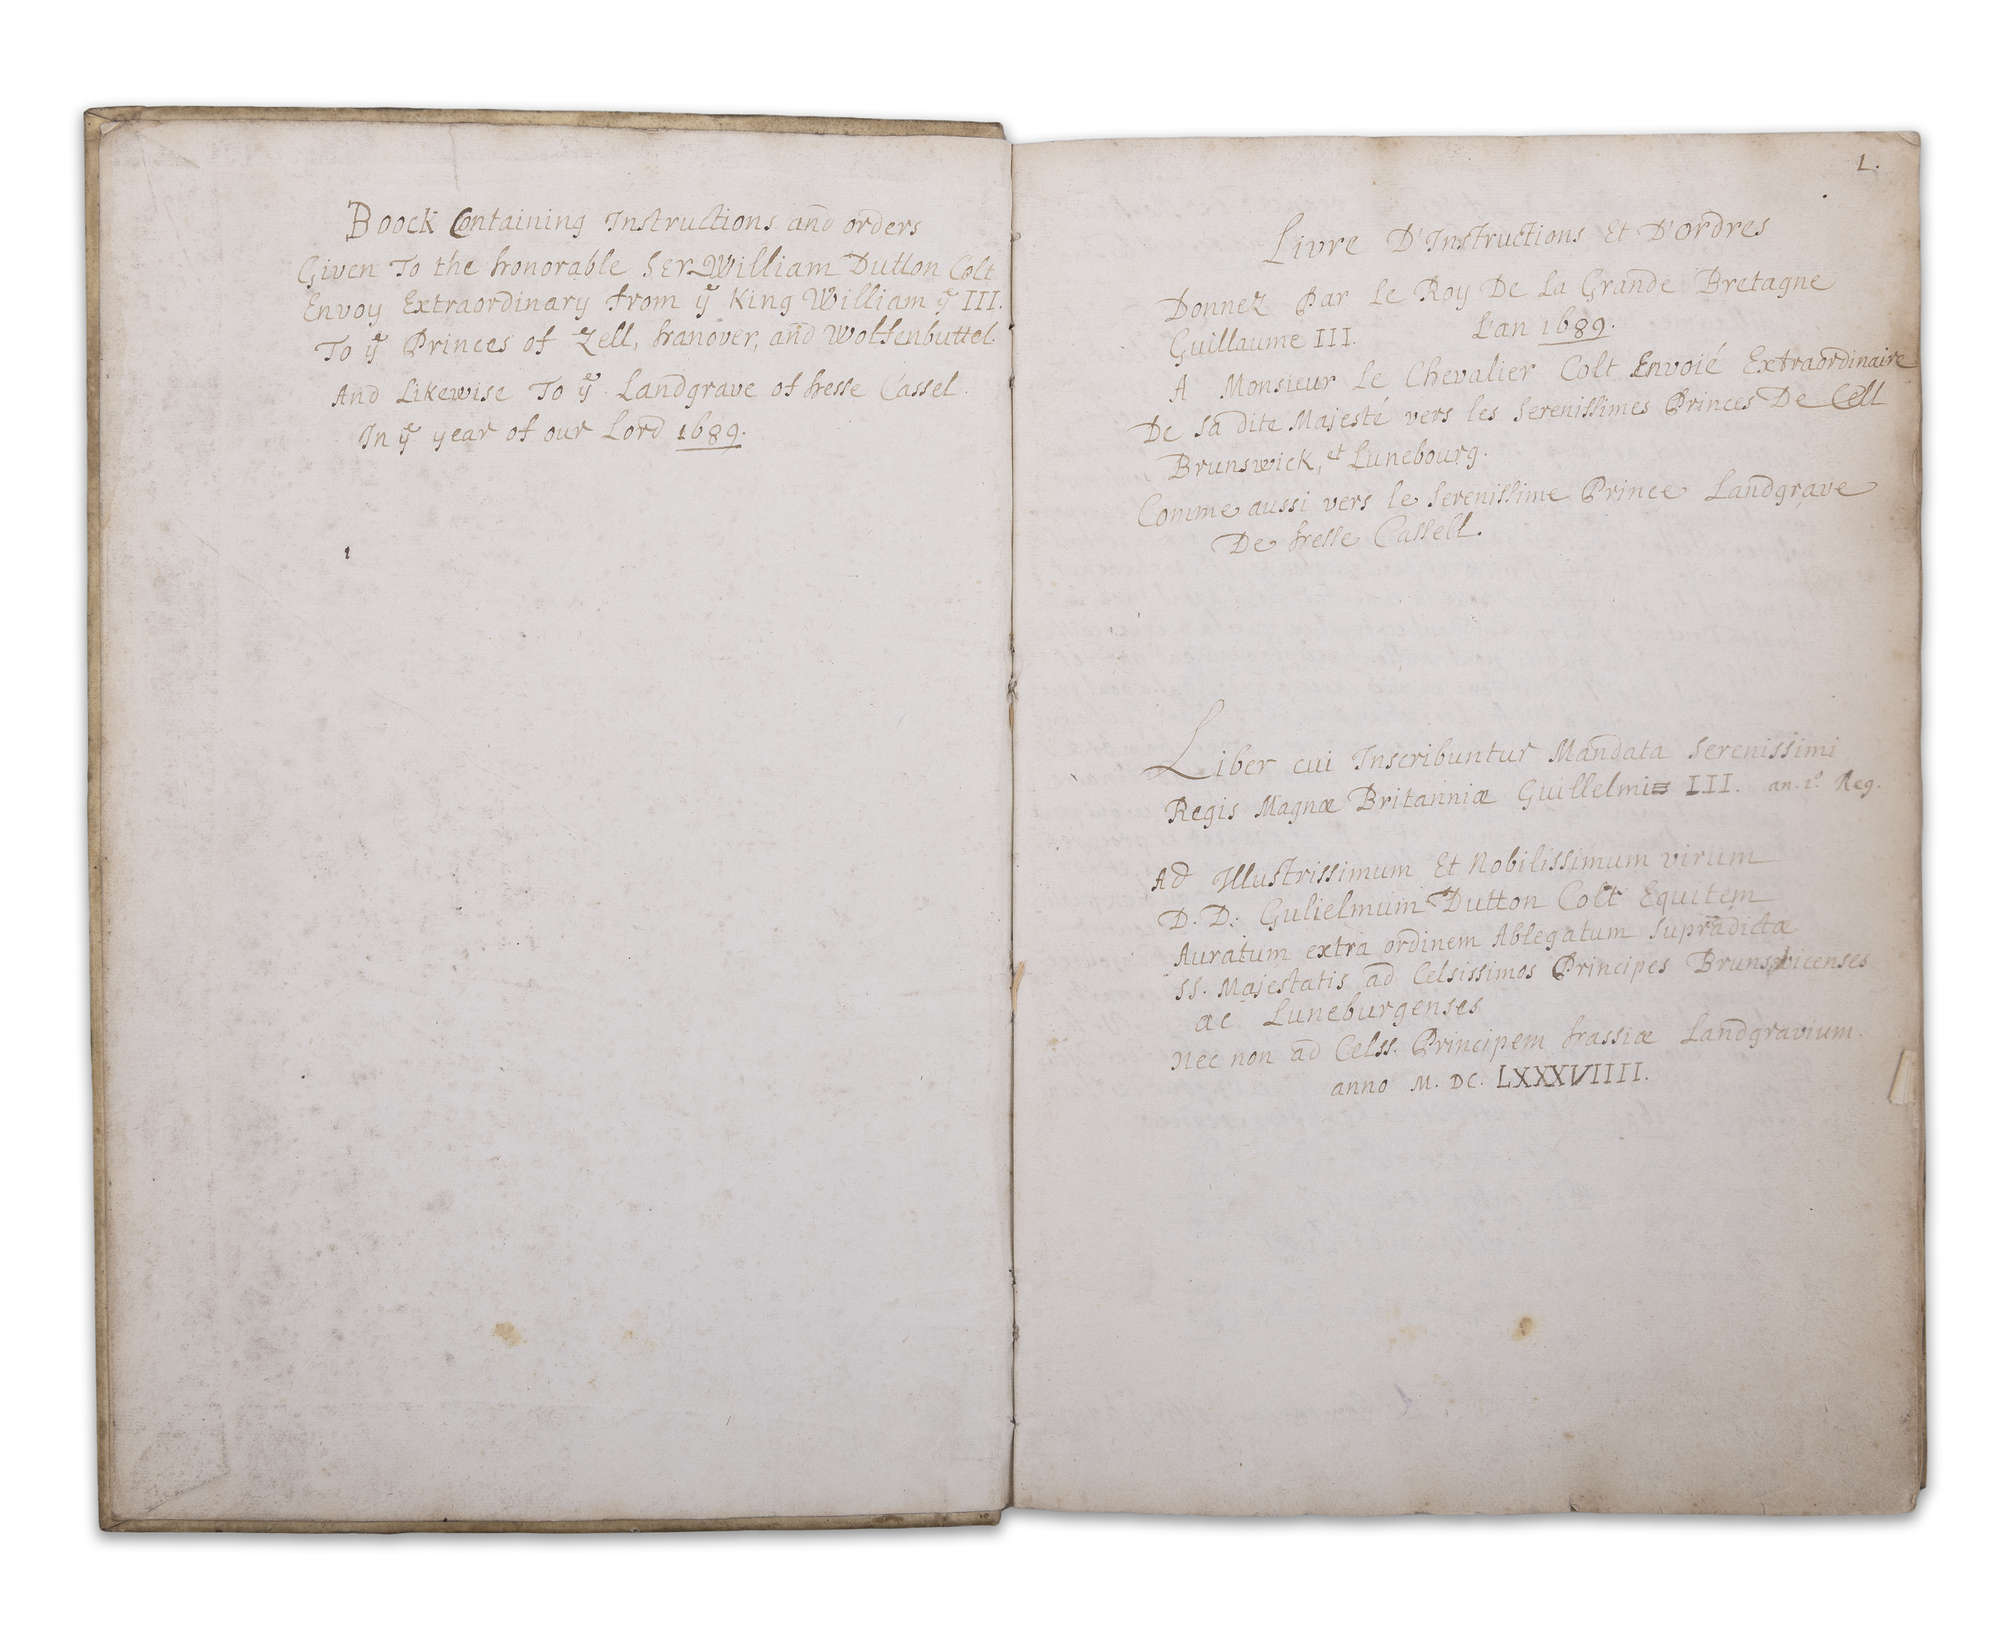 Boock Containing Instructions and orders
Given To the honorable Ser William Dutton Colt
Envoy Extraordinary from yͤ King William yͤ III.
To yͤ Princes of Zell, hanover, and Wolfenbuttel.
And Likewise To yͤ Landgrave of hesse Cassel.
In yͤ year of our Lord 1689.
1.
Livre D'Instructions Et D'ordres
Donnez Par Le Roy De La Grande Bretagne
Guillaume III. L'an 1689.
A Monsieur Le Chevalier Colt Envoié Extraordinaire
De Sa dite Majesté vers les Serenissimes Princes De Cell
Brunswick, et Lunebourg.
Comme aussi vers le Serenissime Prince Landgrave
De hesse Cassell.
Liber cui Inscribuntur Mandata Serenissimi
Regis Magnæ Britanniæ Guillelmi III. an. 1º Reg.
Ad Illustrissimum Et Nobilissimum virum
D. D: Gulielmum Dutton Colt Equitem
Auratum extra ordinem Ablegatum Supradictæ
SS. Majestatis ad Celsissimos Principes Brunswicenses
ac Luneburgenses
Nec non ad Celss. Principem hassiæ Landgravium.
anno M. DC. LXXXVIIII.